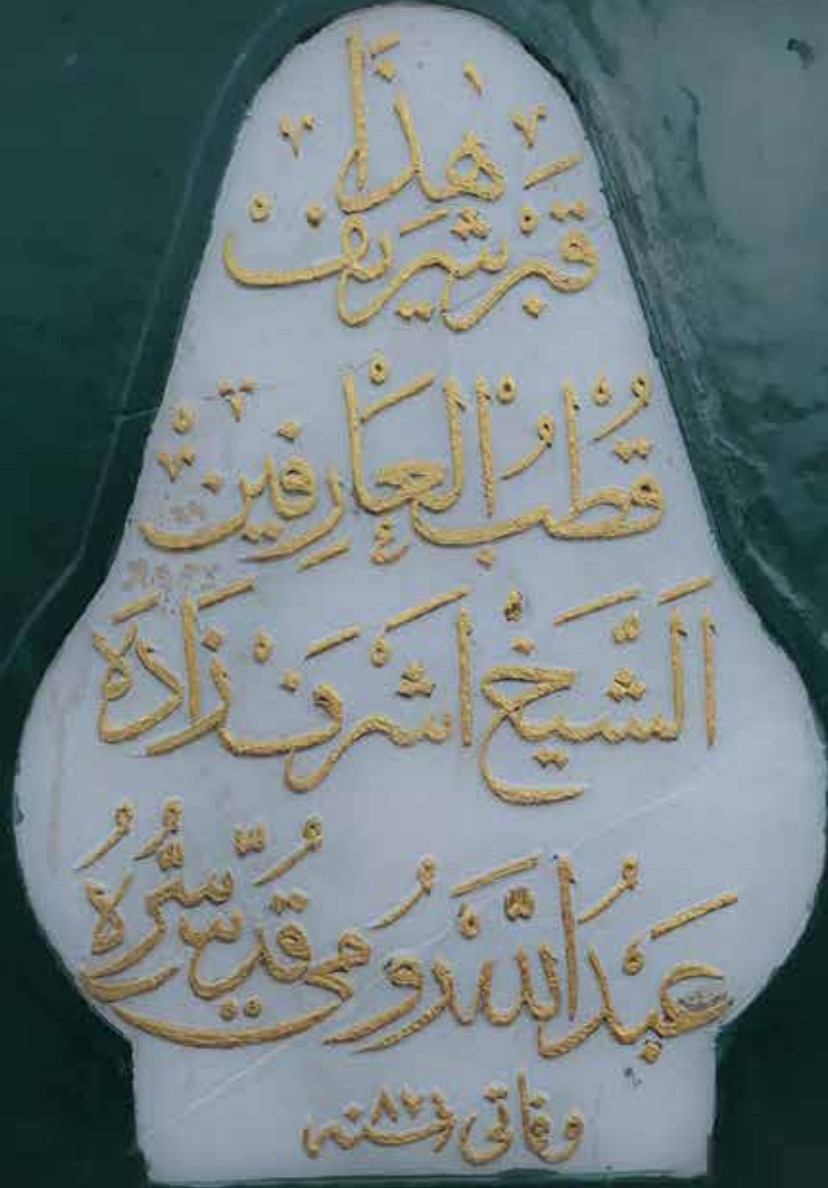 هٰذَا
قَبْرْ شَرِيفْ
قُطْبُ الْعَارِفِينْ
اَلشَّيَخْ اَشْرَفْ زَادَهْ
عَبْدُ اللّٰه رُومِي قُدِّسَ سِرُّهُ
وفاتى سنه